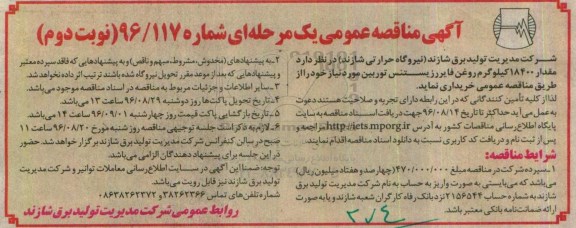 آگهی مناقصه عمومی یک مرحله‌ای شماره ۹۶/۱۱۷ (نوبت دوم)
شرکت مدیریت تولید برق شازند (نیروگاه حرارتی شازند) در نظر دارد
مقدار ۱۸۴۰۰ کیلوگرم روغن فایرزیستنس توربین مورد نیاز خود را از
طریق مناقصه عمومی خریداری نماید.
لذا از کلیه تأمین کنندگانی که در این رابطه دارای تجربه و صلاحیت هستند دعوت
به عمل می‌آید حداکثر تا تاریخ ۹۶/۰۸/۱۴ جهت دریافت اسناد مناقصه به سایت
پایگاه اطلاع رسانی مناقصات کشور به آدرس http://iets.mporg.ir مراجعه و
پس از ثبت نام و دریافت کد کاربری نسبت به دانلود اسناد مناقصه اقدام نمایند.
شرایط مناقصه:
۱ـ سپرده شرکت در مناقصه مبلغ ۴۷۰/۰۰۰/۰۰۰ (چهارصد و هفتاد میلیون ریال)
می‌باشد که می‌بایستی به صورت واریز به حساب به نام شرکت مدیریت تولید برق
شازند به شماره حساب ۲۱۵۶۵۴۴ نزد بانک رفاه کارگران شعبه شازند و یا به صورت
ارائه ضمانت‌نامه بانکی معتبر باشد.
۲ـ به پیشنهادهای (مخدوش، مشروط، مبهم و ناقص) و به پیشنهادهایی که فاقد سپرده معتبر
و پیشنهادهایی که بعد از موعد مقرر تحویل نیروگاه شده باشند ترتیب اثر داده نخواهد شد.
۳ـ سایر اطلاعات و جزئیات مربوط به مناقصه در اسناد مناقصه موجود می‌باشد.
۴ـ تاریخ تحویل پاکت‌ها روز دوشنبه ۹۶/۰۸/۲۹ ساعت ۱۳ می‌باشد.
۵ـ تاریخ بازگشایی پاکت قیمت روز چهارشنبه ۹۶/۰۹/۰۱ ساعت ۱۴ می‌باشد.
۶ـ لازم به ذکر است جلسه توجیهی مناقصه روز شنبه مورخ ۹۶/۰۸/۲۰ ساعت ۱۱
صبح در سالن کنفرانس شرکت مدیریت تولید برق شازند برگزار خواهد شد. حضور
در این جلسه برای پیشنهاد دهندگان الزامی می‌باشد.
توجه: ضمناً این آگهی در سایت اطلاع رسانی معاملات توانیر و شرکت مدیریت
تولید برق شازند نیز قابل رویت می‌باشد.
شماره تلفن‌های تماس: ۳۸۲۶۲۳۶۶ و ۰۸۶۳۸۲۶۲۳۷۲
روابط عمومی شرکت مدیریت تولید برق شازند
۲۰۴